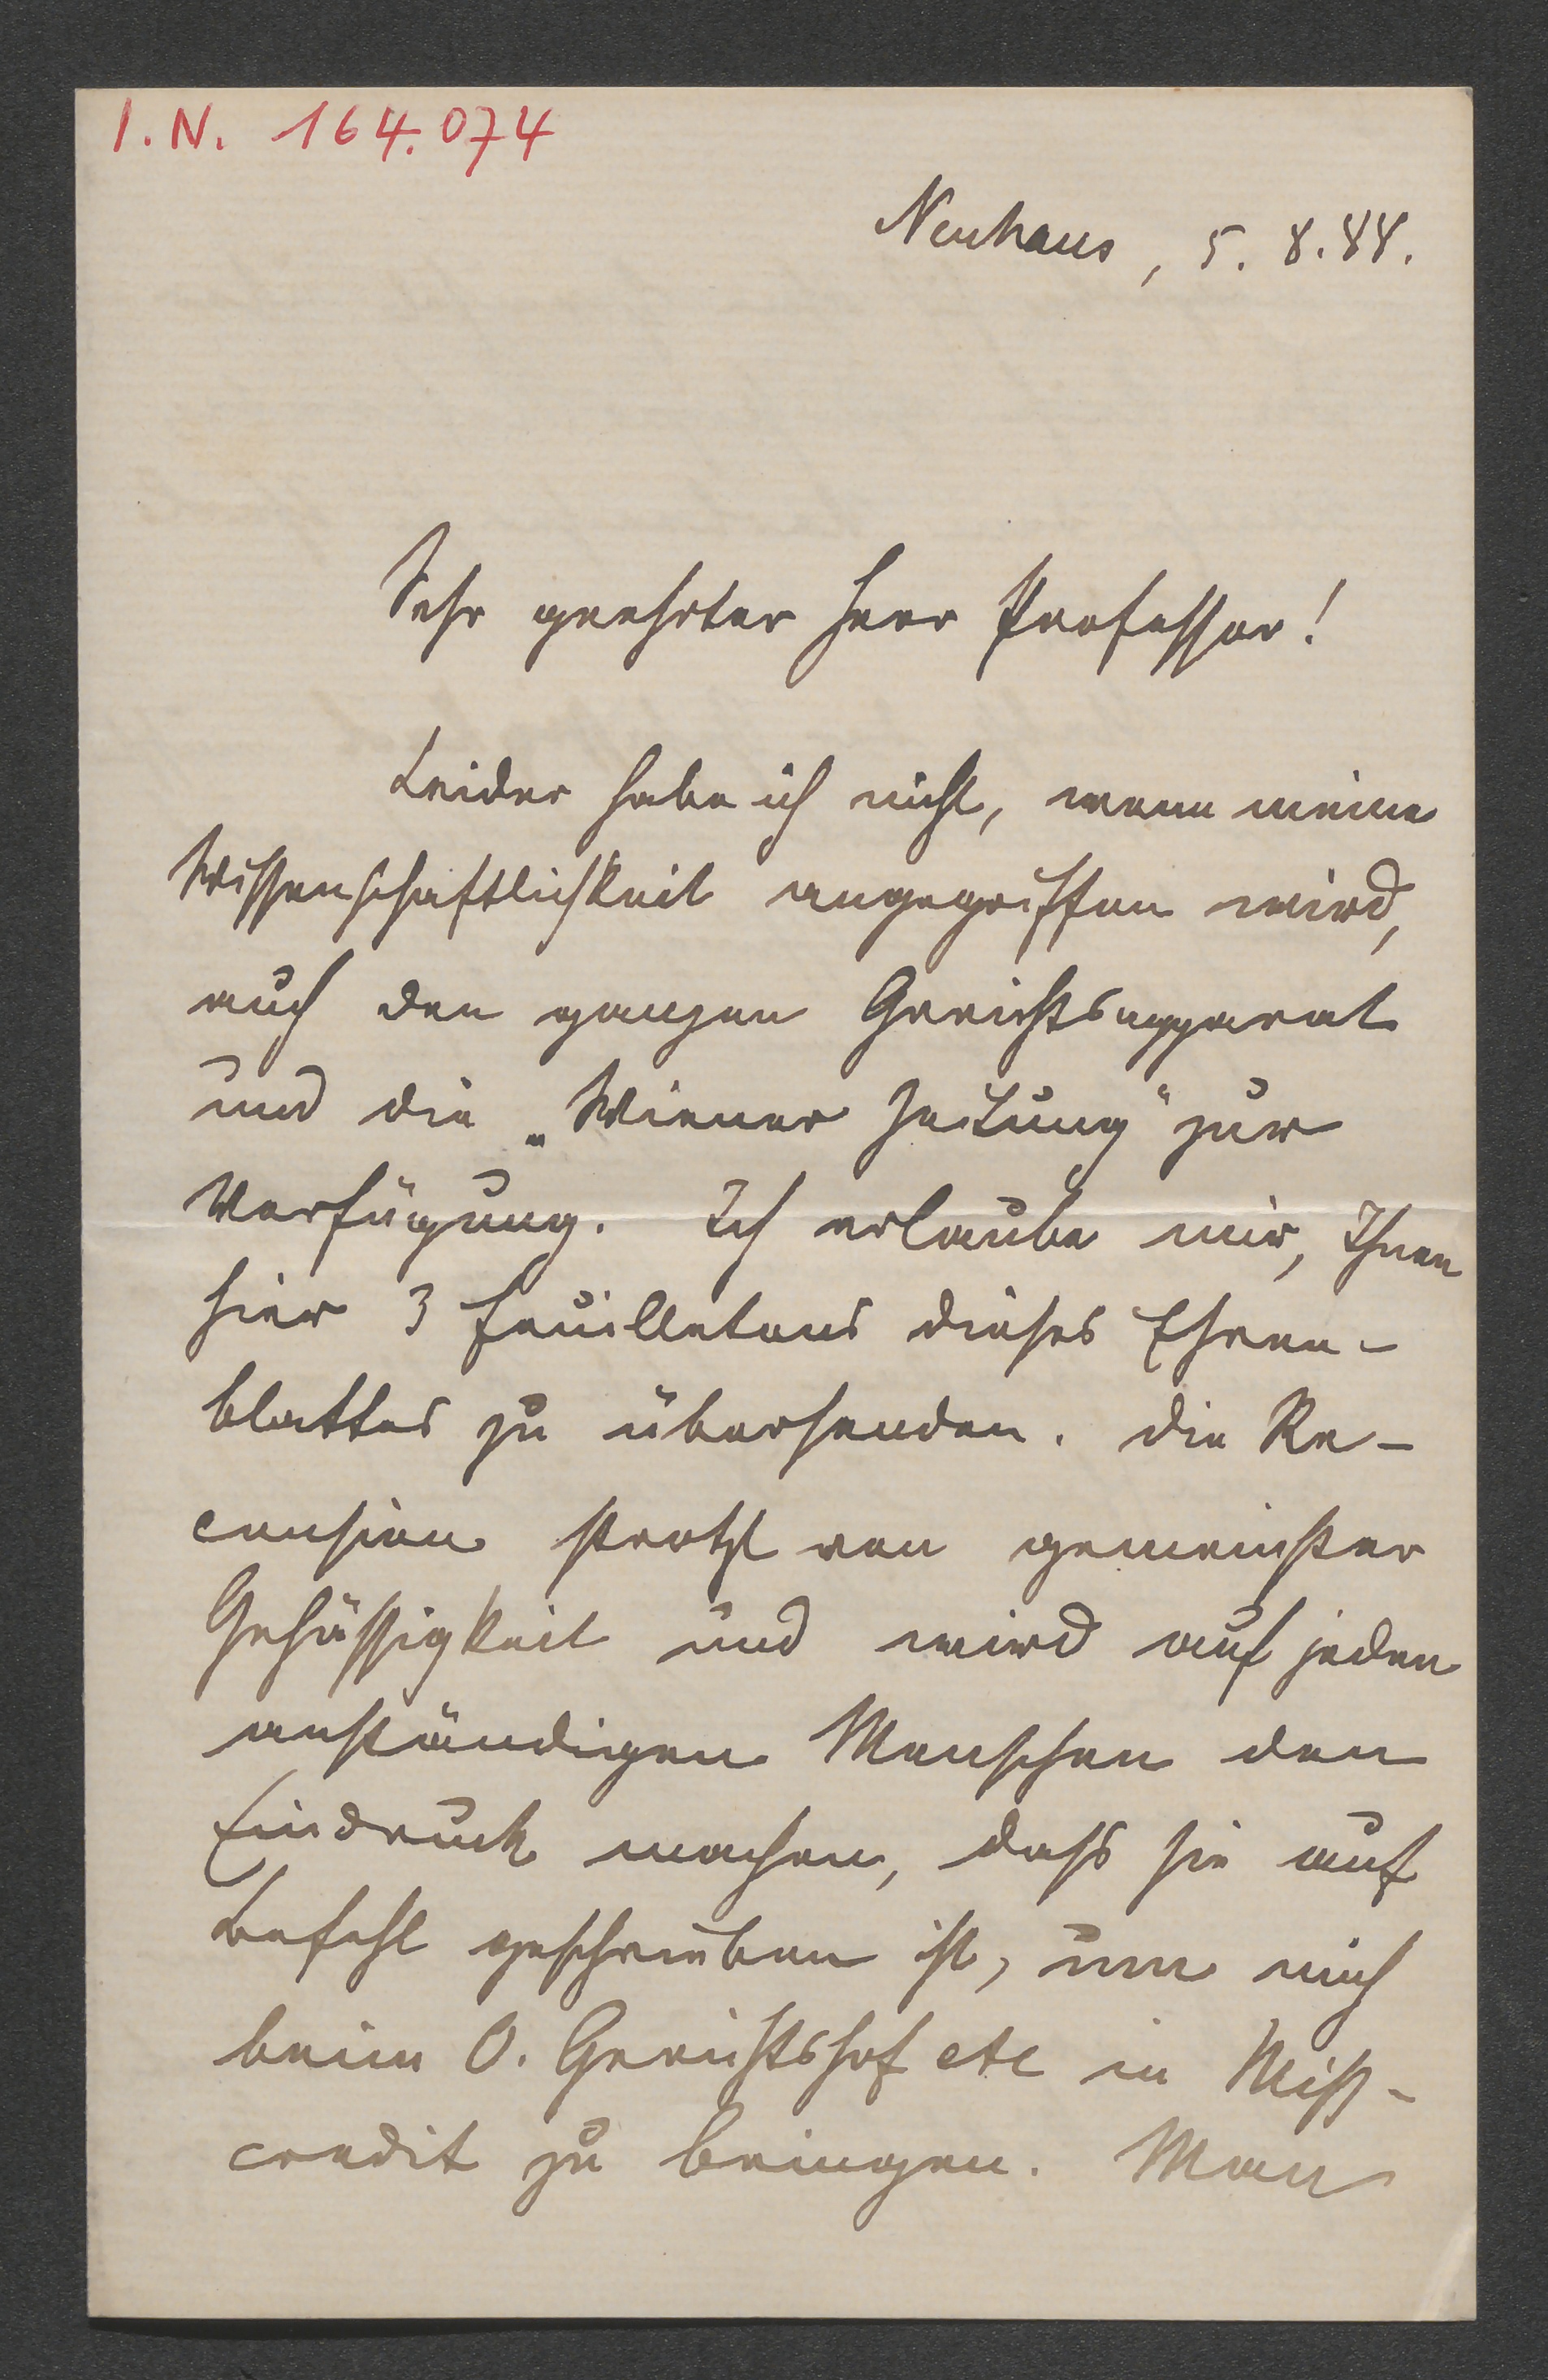 I. N. 164.074
Neuhaus, 5. 8. 88.
Sehr geehrter Herr Professor!
Leider habe ich nicht, wenn meine
Wissenschaftlichkeit angegriffen wird,
auch den ganzen Gerichtsapparat
und die „Wiener Zeitung“ zur
Verfügung. Ich erlaube mir, Ihnen
hier 3 Feuilletons dieses Ehren-
blattes zu übersenden. Die Re-
cension strotzt von gemeinster
Gehässigkeit und wird auf jeden
anständigen Menschen den
Eindruck machen, dass sie auf
Befehl geschrieben ist, um mich
beim O. Gerichtshof etc in Miss-
credit zu bringen. Man